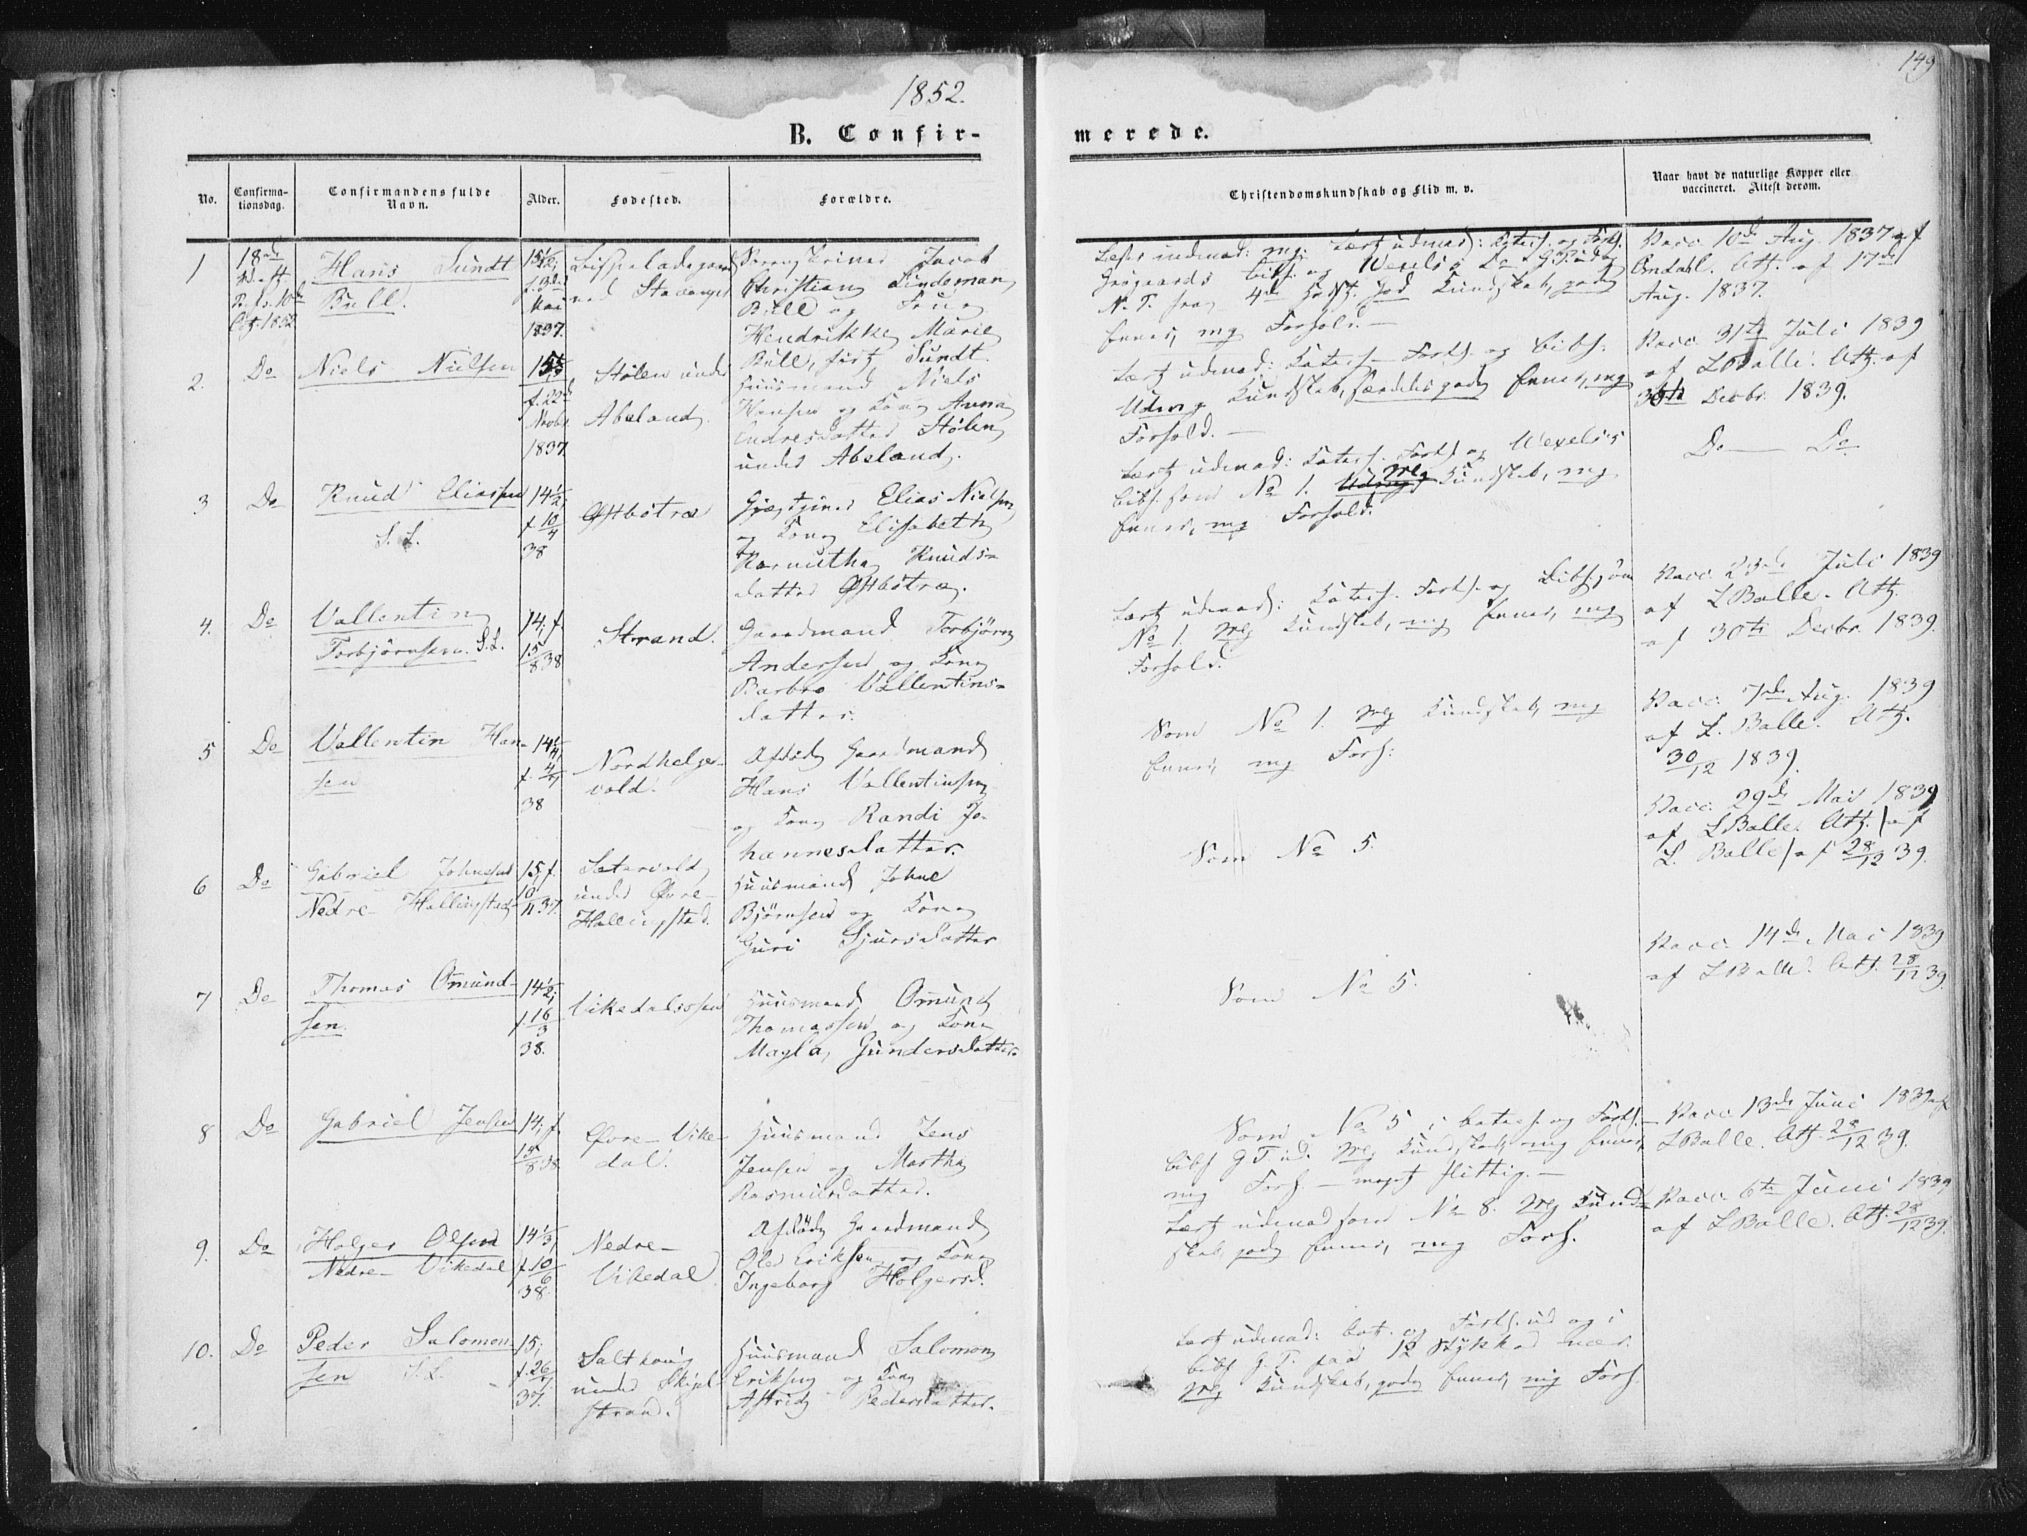 1852.
149
B. Confir-
merede.
No.
Confirma-
tionsdag.
Confirmandens fulde
Navn.
Alder.
Fødested.
Forældre.
Christendomskundskab og Flid m. v.
Naar havt de naturlige Kopper eller
vaccineret. Attest derom.
1
18de
1852
Hans Sundt
Bull.
1837.
Bispeladegaard
ved Stavanger
Sorenskriver Jacob
Christian Lindeman
Bull og Frue
Hendrikke Marie
Bull, født Sundt.
Grøgaards Bibh. og Wexels's
N. T. fra 4de Kundskab, gode
Evner, mg Forhold. —
Vacc. 10de Aug. 1837 af
Att. af 17de
Aug. 1837.
2.
Do
Niels Nielsen
f. 22de
Novbr.
1837
Stølen under
Abeland.
Huusmand Niels
Hansen og Kone Anna
Endresdatter Stølen
under Abeland.
Lært udenad: Katech. Forkl. og Bibh.
Udmg Kundskab, særdeles gode Evner, mg
Forhold. —
Vacc. 31te Juli 1839
af L Balle. Att. af
30te Decbr. 1839.
3
Do
Knud Eliassen
S. L.
14½,
f. 10/4
38
Østbøtræ
Gjæstgiver Elias Nielsen
og Kone Elisabeth
Knuds-
datter Østbøtræ.
Lært udenad: Katech. Forkl. og Wexels's
Bibh. som No 1. Kundskab, mg
Evner, mg Forhold.
Do — Do
4.
Do
Vallentin
Torbjørnsen. S. L.
14, f.
15/8 38
Strand.
Gaardmand Torbjørn
Andersen og Kone
Barbro Vallentins-
datter.
Lært udenad: Katech. Forkl. og Bibh. som
No 1. mg Kundskab, mg Evner, mg
Forhold.
Vacc. 23de Juli 1839
af L Balle. Att.
af 30te Decbr. 1839.
5
Do
Vallentin Han-
sen
14¼,
38
Nordhelge-
vold.
Afdøde Gaardmand
Hans Vallentinsen
og Kone Randi Jo-
hannesdatter.
Som No 1. mg Kundskab, mg
Evner, mg Forh:
Vacc. 7de Aug. 1839
af L. Balle. Att.
30/12 1839.
6
Do
Gabriel Johnsen
Nedre Hallingstad
15, f.
37
under Øvre-
Hallingstad.
Huusmand Johne
Bjørnsen og Kone
Guri Sjursdatter
Som No 5.
Vacc. 29de Mai 1839
af L Balle. Att. af
L. Balle af 28/12 39.
7
Do
Thomas Omund-
sen.
14½,
f. 16/3
38.
Vikedalsosen
Huusmand Omund
Thomassen og Kone
Magla Gundersdatter.
Som No 5.
Vacc. 14de Mai 1839
af L Balle. Att. 28/12 39
8
Do
Gabriel Jensen
14, f.
15/8 38
Øvre Vike-
dal.
Huusmand Jens
Jensen og Martha
Rasmusdatter.
Som No 5 i Katech. og Forkl. —
Bibh G. T. ud. mg Kundskab, mg Evner,
mg Forh. — meget flittig. —
Vacc. 13de Juni 1839 af
L Balle. Att. 28/12 39.
9.
Do
Holger Olsen
Nedre Vikedal
f. 10/6
38
Nedre
Vikedal
Afdøde Gaardmand
Ole Eriksen og Kone
Ingeborg Holgersd.
Lært udenad som No 8. mg Kund-
skab, gode Evner, mg Forh.
Vacc. 6te Juni 1839
af L Balle. Att. 28/12 39.
10.
Do
Peder Salomon-
sen S. L.
15,
37.
Salthoug
under Skjel-
strand.
Huusmand Salomon
Eriksen og Kone
Astrid Pedersdatter.
Lært udenad: Cat. og Forkl. ud og i
Bibh G. T. paa 12 Stykker nær.
mg Kundskab, gode Evner, mg Forh.